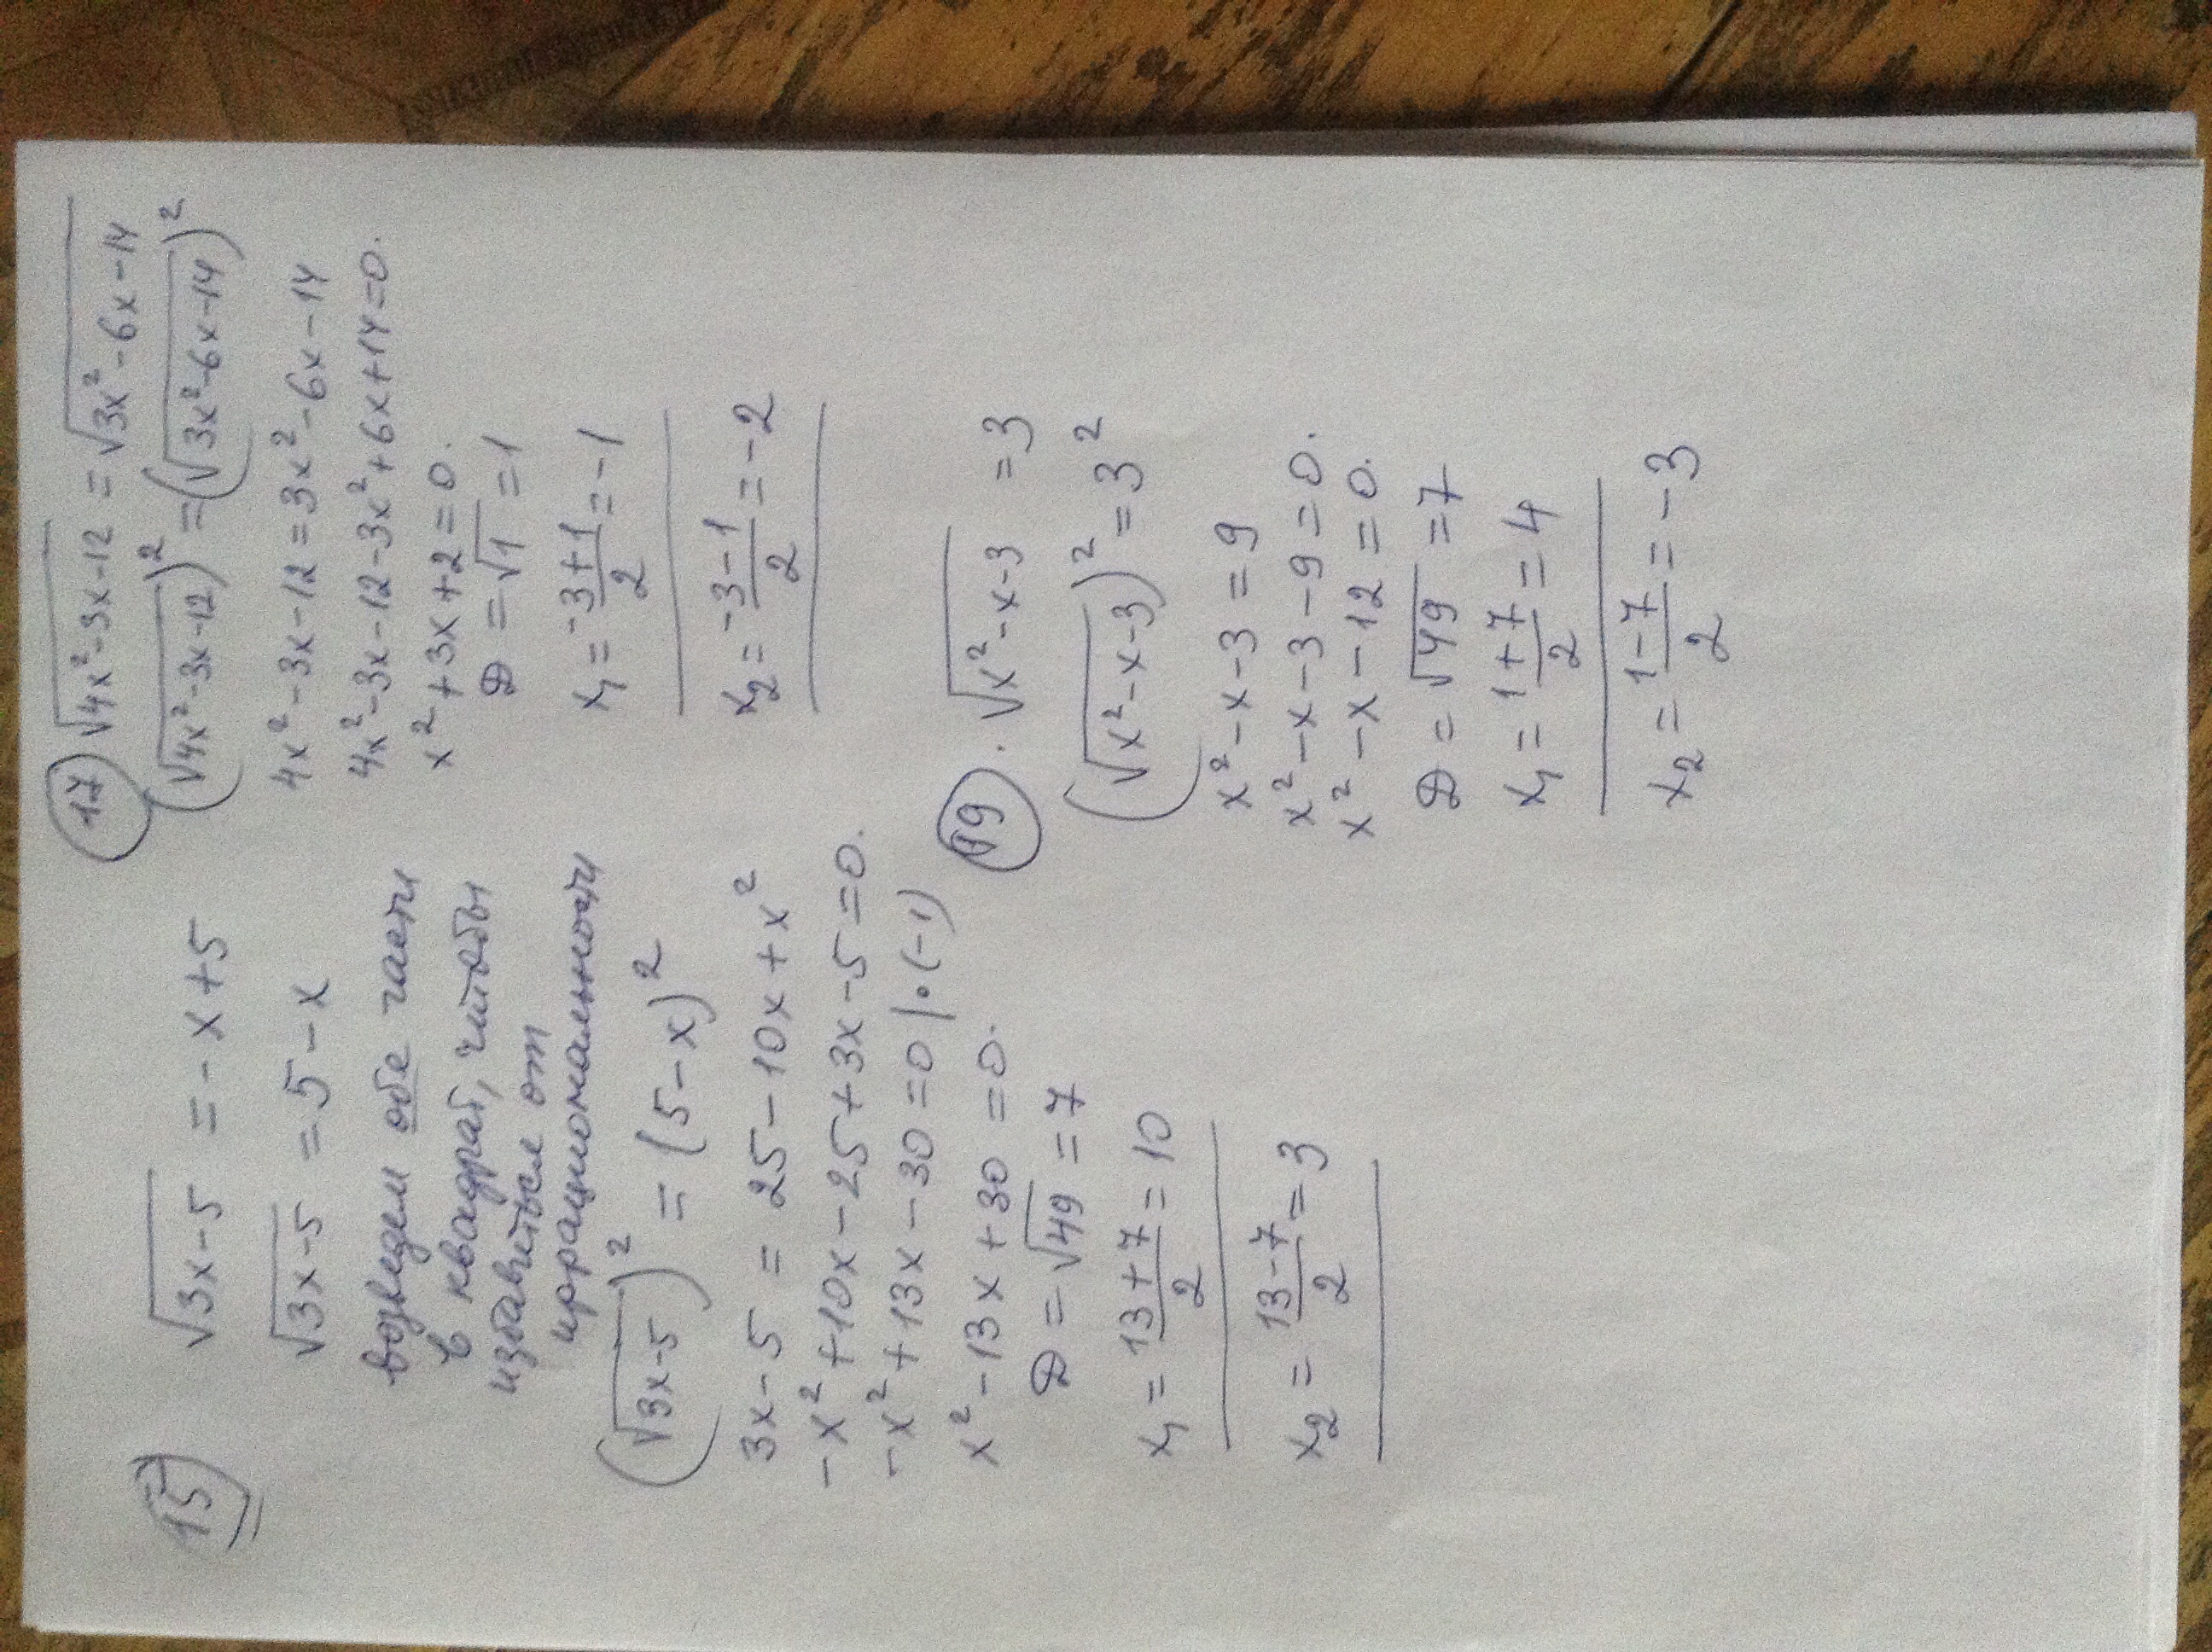 15
√3x-5 = -x+5
√3x-5 = 5-x
возведем обе части
в квадрат, чтобы
избавиться от
иррациональности
(√3x-5)² = (5-x)²
3x-5 = 25-10x+x²
-x²+10x-25+3x-5=0.
-x²+13x-30=0 |•(-1)
x²-13x+30=0.
D=√49=7
x₁ = 13+7/2 = 10
x₂ = 13-7/2 = 3
17 √4x²-3x-12 = √3x²-6x-14
(√4x²-3x-12)² = (√3x²-6x-14)²
4x²-3x-12=3x²-6x-14
4x²-3x-12-3x²+6x+14=0.
x²+3x+2=0.
D=√1=1
x₁ = -3+1/2 = -1
x₂ = -3-1/2 = -2
19. √x²-x-3 = 3
(√x²-x-3)² = 3²
x²-x-3=9
x²-x-3-9=0.
x²-x-12=0.
D=√49=7
x₁ = 1+7/2 = 4
x₂ = 1-7/2 = -3